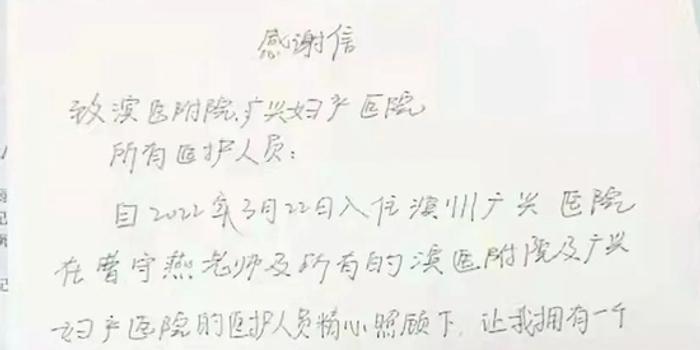 感谢信
致滨医附院、广兴妇产医院
所有医护人员：
自2022年3月22日入住滨州广兴医院
在曹守燕老师及所有的滨医附院及广兴
妇产医院的医护人员精心照顾下，让我拥有一个